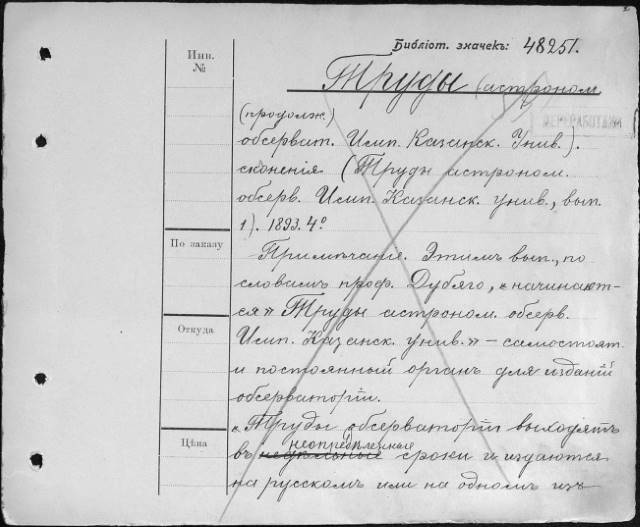 Библіот. значекъ: 48251.
Инв.
№
Труды (астроном
(продолж.)
ПЕРЕРАБОТАН
обсерват. Имп. Казанск. Унив.).
сконенія (Труды астроном.
обсерв. Имп. Казанск. унив., вып.
1). 1893. 4º
По заказу
Примѣчаніе. Этимъ вып., по
словамъ проф. Дубяго, „начинают-
ся» Труды астроном. обсерв.
Откуда
Имп. Казанск. унив.» – самостоят.
и постоянный органъ для изданій
обсерваторіи.
„Труды обсерваторіи выходятъ
Цѣна
неопредѣленные
въ сроки и издаются
на русскомъ или на одномъ изъ